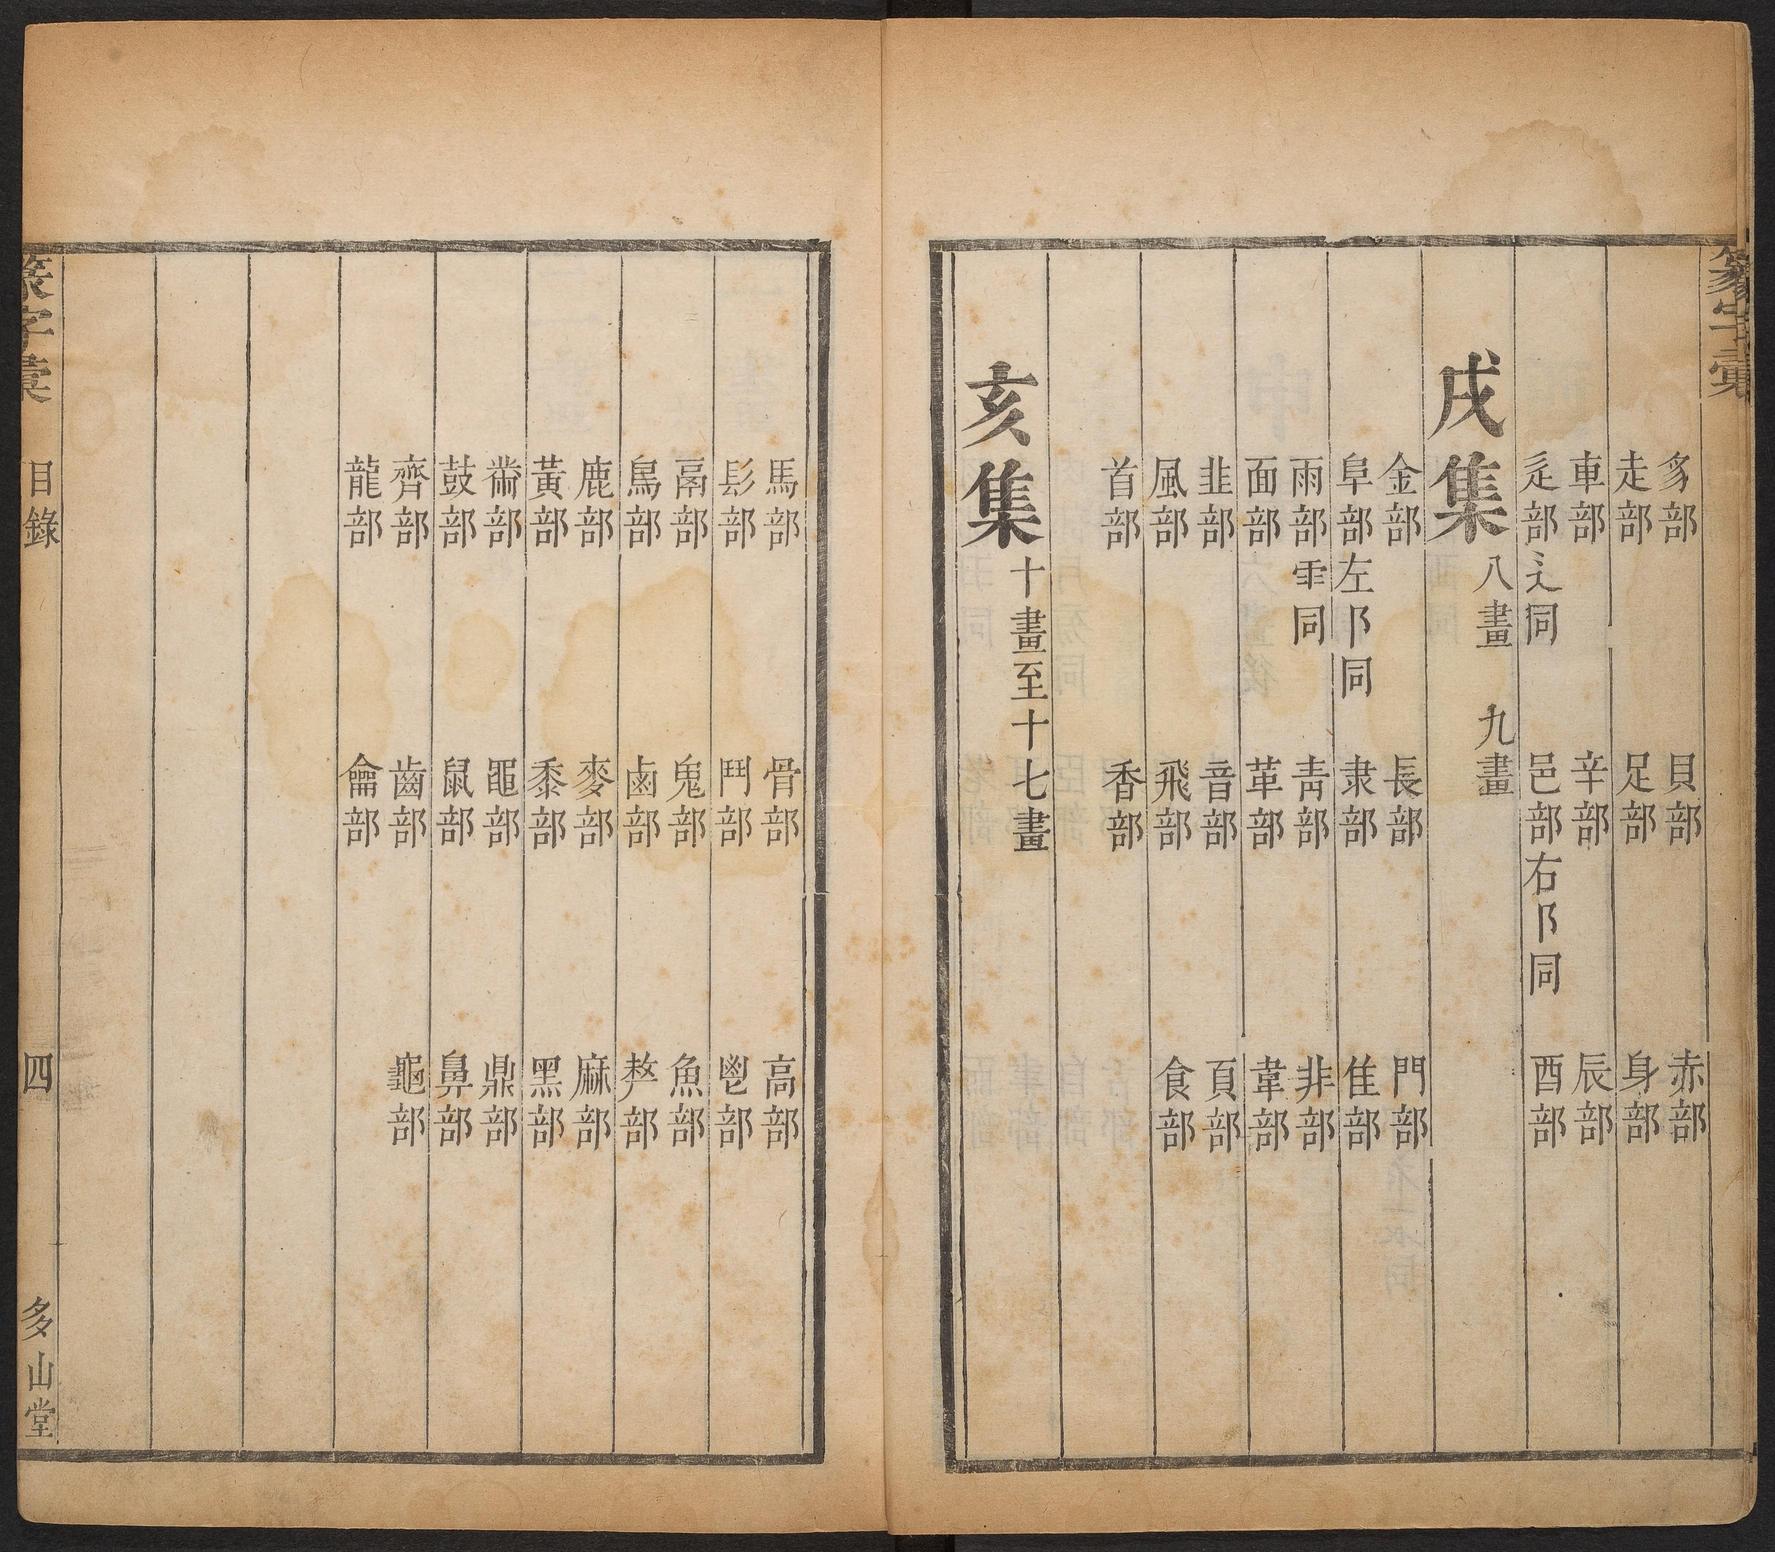 篆字彙
豸部 貝部 赤部
走部 足部 身部
車部 辛部 辰部
辵部辶同 邑部右阝同 酉部
戌集 八畫 九畫
金部 長部 門部
阜部左阝同 隶部 隹部
雨部⻗同 靑部 非部
面部 革部 韋部
韭部 音部 頁部
風部 飛部 食部
首部 香部
亥集 十畫至十七畫
馬部 骨部 高部
髟部 鬥部 鬯部
鬲部 鬼部 魚部
鳥部 鹵部 部
鹿部 麥部 麻部
黃部 黍部 黑部
黹部 黽部 鼎部
鼓部 鼠部 鼻部
齊部 齒部 龜部
龍部 龠部
篆字彙 目錄 四 多山堂